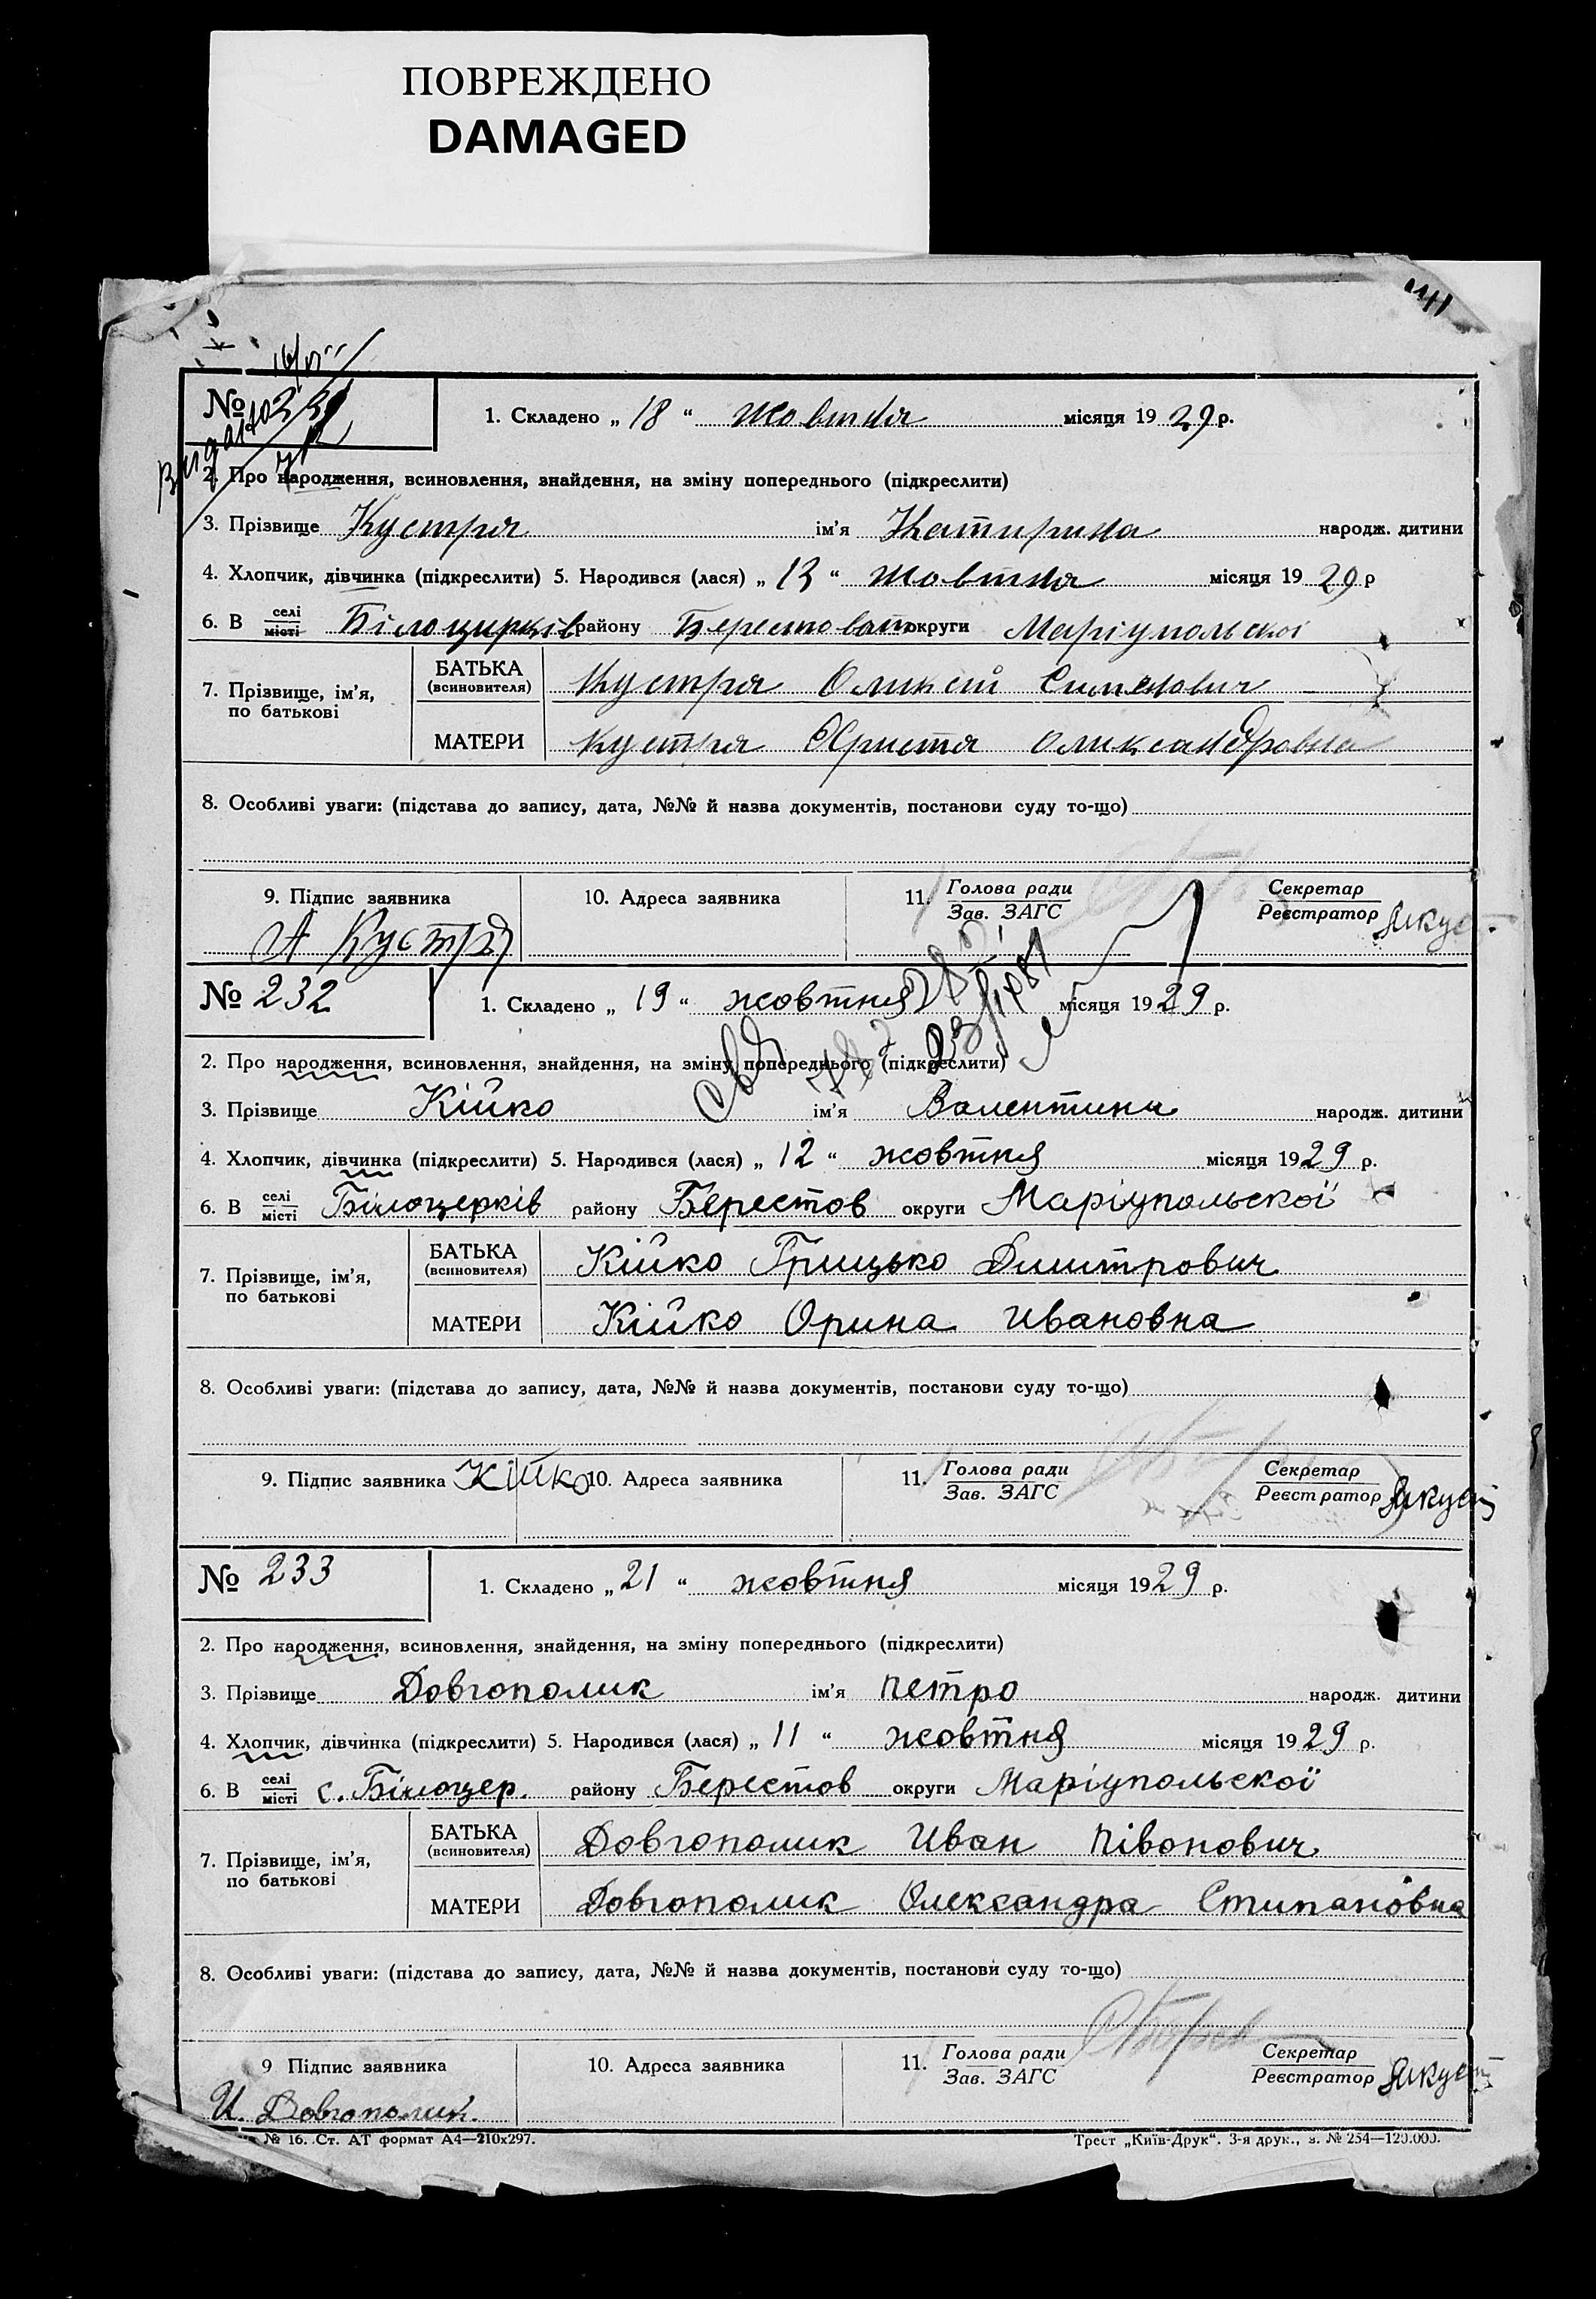 ПОВРЕЖДЕНО
DAMAGED
№
1. Складено „ 18 “ Жовтня місяця 19 29 р.
2. Про народження, всиновлення, знайдення, на зміну попереднього (підкреслити)
3. Прізвище Кустря ім’я Катирина народж. дитини
4. Хлопчик, дівчинка (підкреслити) 5. Народився (лася) „ 13 “ Жовтня місяця 19 29 р
6. В селі місті Білоцирків району Берестоват округи Маріупольскоі
7. Прізвище, ім’я, по батькові
БАТЬКА (всиновителя) Кустря Оликсій Симянович
МАТЕРИ Кустря Христя Оликсандровна
8. Особливі уваги: (підстава до запису, дата, №№ й назва документів, постанови суду то-що)
9. Підпис заявника 10. Адреса заявника 11. Голова ради Зав. ЗАГС Секретар Реєстратор
А Кустря
№ 232 1. Складено „ 19 “ жовтня місяця 19 29 р.
2. Про народження, всиновлення, знайдення, на зміну попереднього (підкреслити)
3. Прізвище Кійко ім’я Валентина народж. дитини
4. Хлопчик, дівчинка (підкреслити) 5. Народився (лася) „ 12 “ жовтня місяця 19 29 р.
6. В селі місті Білоцерків району Берестов округи Маріупольскої
7. Прізвище, ім’я, по батькові
БАТЬКА (всиновителя) Кійко Грицько Дмитрович
МАТЕРИ Кійко Орина Ивановна
8. Особливі уваги: (підстава до запису, дата, №№ й назва документів, постанови суду то-що)
9. Підпис заявника Кійко 10. Адреса заявника 11. Голова ради Зав. ЗАГС Секретар Реєстратор
№ 233 1. Складено „ 21 “ жовтня місяця 19 29 р.
2. Про народження, всиновлення, знайдення, на зміну попереднього (підкреслити)
3. Прізвище Довгополик ім’я Петро народж. дитини
4. Хлопчик, дівчинка (підкреслити) 5. Народився (лася) „ 11 “ жовтня місяця 19 29 р.
6. В селі місті с. Білоцер. району Берестов округи Маріупольскої
7. Прізвище, ім’я, по батькові
БАТЬКА (всиновителя) Довгополик Иван Півонович
МАТЕРИ Довгополик Олександра Стипановна
8. Особливі уваги: (підстава до запису, дата, №№ й назва документів, постанови суду то-що)
9 Підпис заявника 10. Адреса заявника 11. Голова ради Зав. ЗАГС Секретар Реєстратор
И. Довгополик.
№ 16. Ст. АТ формат А4—210х297. Трест „Київ-Друк“. 3-я друк., з. № 254—120.000.